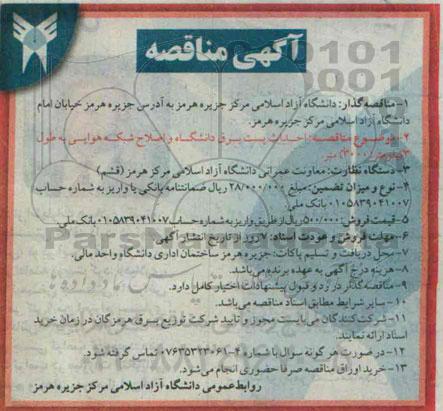 آگهی مناقصه
۱-مناقصه‌گذار: دانشگاه آزاد اسلامی مرکز جزیره هرمز به آدرس جزیره هرمز خیابان امام
دانشگاه آزاد اسلامی مرکز جزیره هرمز.
۲-موضوع مناقصه: احداث پست برق دانشگاه و اصلاح شبکه هوایی به طول
۳کیلومتر(۳۰۰۰) متر
۳- دستگاه نظارت: معاونت عمرانی دانشگاه آزاد اسلامی مرکز جزیره هرمز (قشم)
۴-نوع و میزان تضمین: مبلغ ۲۸/۰۰۰/۰۰۰ ریال ضمانتنامه بانکی یا واریز به شماره حساب
۰۱۰۵۸۳۹۰۴۱۰۰۷ بانک ملی
۵-قیمت فروش: ۵۰۰/۰۰۰ ریال از طریق واریز به شماره حساب ۰۱۰۵۸۳۹۰۴۱۰۰۷ بانک ملی
۶- مهلت فروش و عودت اسناد: ۷ روز از تاریخ انتشار آگهی
۷-محل دریافت و تسلیم پاکات: جزیره هرمز ساختمان اداری دانشگاه واحد مالی.
۸-هزینه درج آگهی به عهده برنده می‌باشد.
۹-مناقصه‌گذار در رد و قبول پیشنهادات اختیار کامل دارد.
۱۰- سایر شرایط مطابق اسناد مناقصه می‌باشد.
۱۱-شرکت‌کنندگان می‌بایست مجوز و تایید شرکت توزیع برق هرمزگان در زمان خرید
اسناد ارائه نمایند.
۱۲-در صورت هر گونه سوال با شماره ۴-۰۷۶۳۵۳۲۳۰۶۱ تماس گرفته شود.
۱۳-خرید اوراق مناقصه صرفا حضوری انجام می‌شود.
روابط عمومی دانشگاه آزاد اسلامی مرکز جزیره هرمز